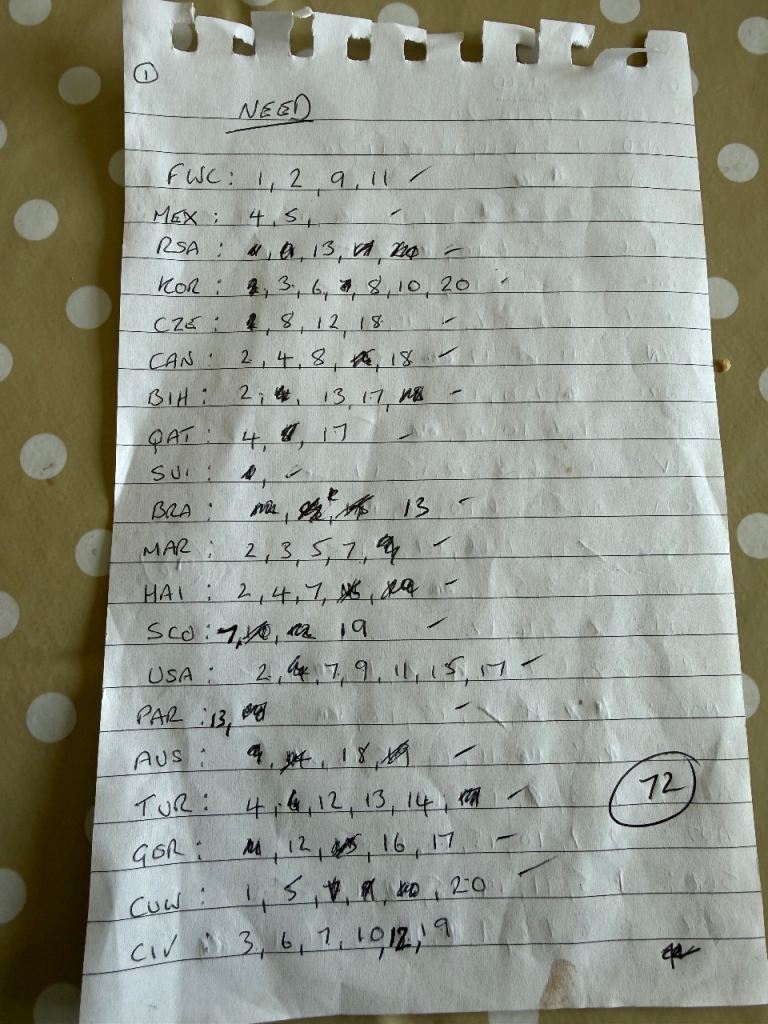 1
NEED
FWC: 1, 2, 9, 11 ✓
MEX: 4, 5, ✓
RSA: 13, ✓
KOR: 3, 6, 8, 10, 20 ✓
CZE: 8, 12, 18 ✓
CAN: 2, 4, 8, 18 ✓
BIH: 2, 13, 17, ✓
QAT: 4, 17 ✓
SUI: ✓
BRA: 13 ✓
MAR: 2, 3, 5, 7, ✓
HAI: 2, 4, 7, ✓
SCO: 7, 19 ✓
USA: 2, 7, 9, 11, 15, 17 ✓
PAR: 13, ✓
AUS: 18, ✓
TUR: 4, 12, 13, 14, ✓
GER: 12, 16, 17 ✓
CUW: 1, 5, 20 ✓
CIV: 3, 6, 7, 10, 12, 19
72